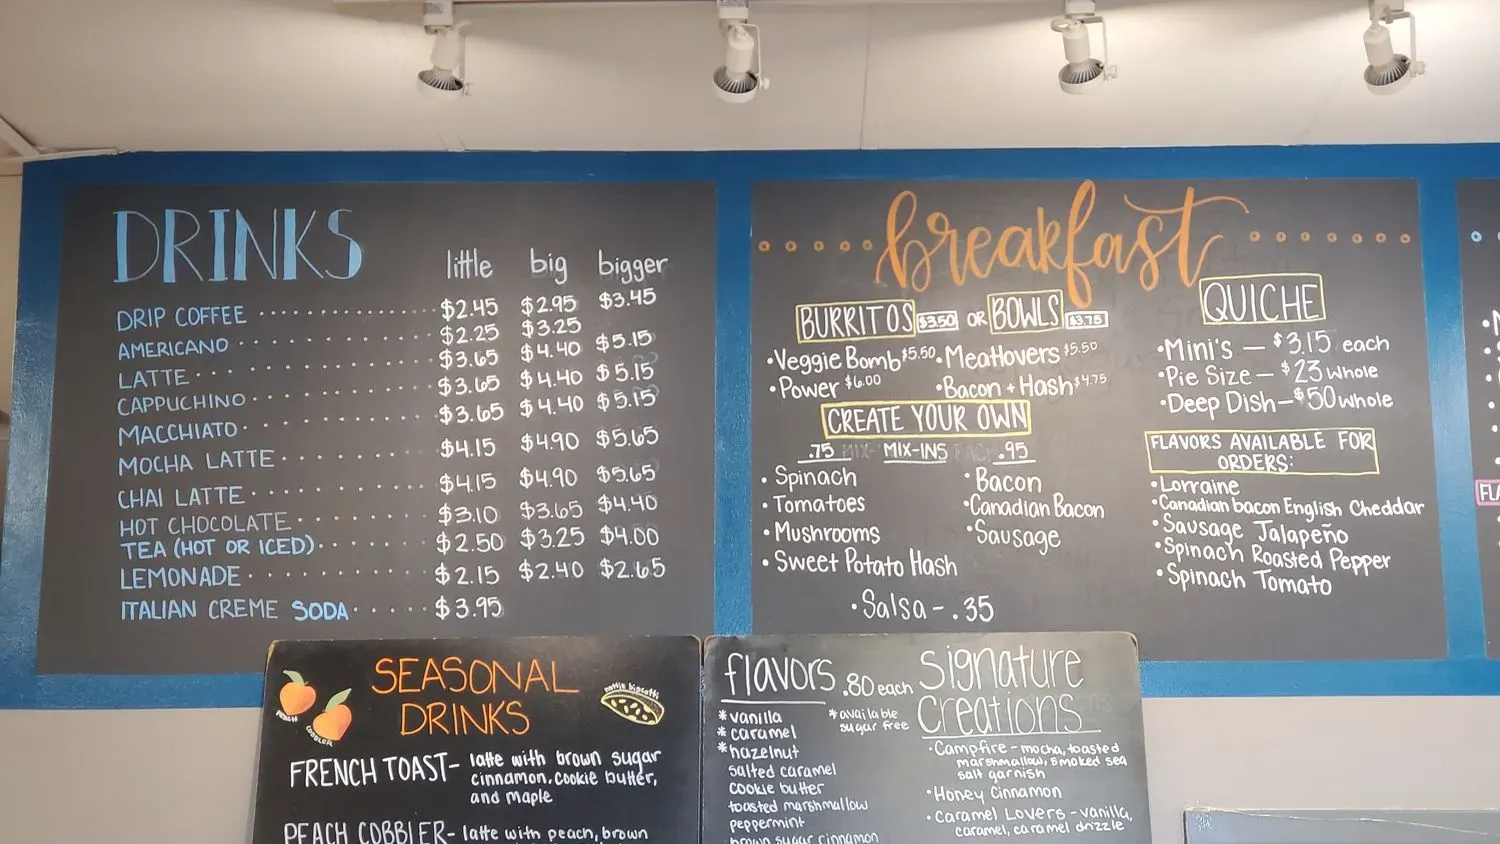 DRINKS
little big bigger
DRIP COFFEE $2.45 $2.95 $3.45
AMERICANO $2.25 $3.25
LATTE $3.65 $4.40 $5.15
CAPPUCHINO $3.65 $4.40 $5.15
MACCHIATO $3.65 $4.40 $5.15
MOCHA LATTE $4.15 $4.90 $5.65
CHAI LATTE $4.15 $4.90 $5.65
HOT CHOCOLATE $3.10 $3.65 $4.40
TEA (HOT OR ICED) $2.50 $3.25 $4.00
LEMONADE $2.15 $2.40 $2.65
ITALIAN CREME SODA $3.95
breakfast
BURRITOS $3.50 OR BOWLS $3.75
•Veggie Bomb $5.50 •Meatlovers $5.50
•Power $6.00 •Bacon + Hash $4.75
CREATE YOUR OWN
.75 MIX-INS .95
• Spinach
• Tomatoes
• Mushrooms
• Sweet Potato Hash
• Bacon
•Canadian Bacon
•Sausage
•Salsa - .35
QUICHE
•Mini's — $3.15 each
•Pie Size — $23 whole
•Deep Dish — $50 whole
FLAVORS AVAILABLE FOR
ORDERS:
•Lorraine
•Canadian bacon English Cheddar
•Sausage Jalapeño
•Spinach Roasted Pepper
•Spinach Tomato
SEASONAL
DRINKS
PEACH
COBBLER
FRENCH TOAST- latte with brown sugar
cinnamon, cookie butter,
and maple
PEACH COBBLER- latte with peach, brown
flavors .80 each
*available
sugar free
*vanilla
*caramel
*hazelnut
salted caramel
cookie butter
toasted marshmallow
peppermint
brown sugar cinnamon
signature
creations
•Campfire - mocha, toasted
marshmallow, smoked sea
salt garnish
•Honey Cinnamon
•Caramel Lovers - vanilla,
caramel, caramel drizzle